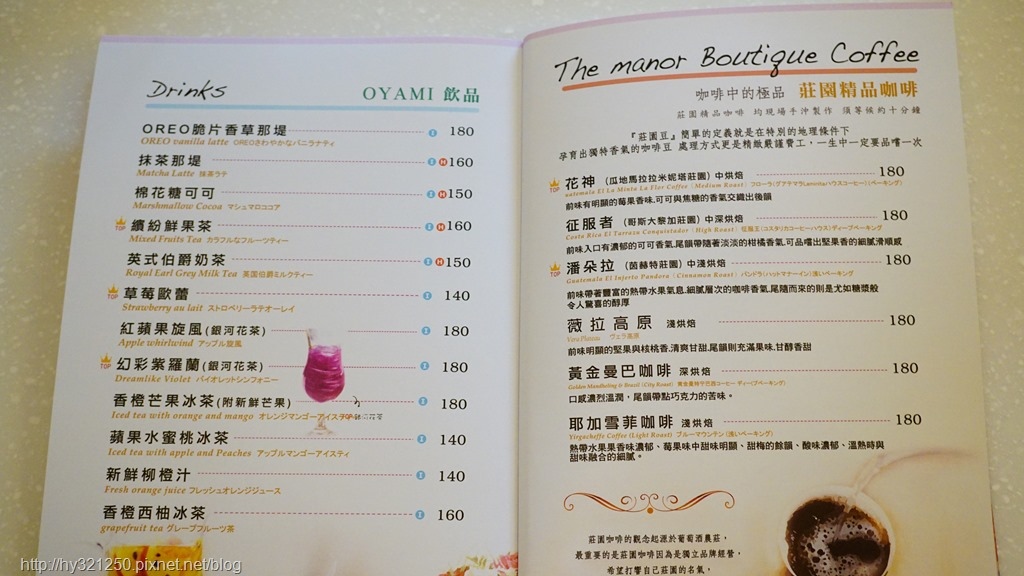 Drinks
OYAMI 飲品
OREO脆片香草那堤 I 180
OREO vanilla latte OREOさわやかなバニラナティ
抹茶那堤 I H 160
Matcha Latte 抹茶ラテ
棉花糖可可 I H 150
Marshmallow Cocoa マシュマロココア
TOP 繽紛鮮果茶 I H 160
Mixed Fruits Tea カラフルなフルーツティー
英式伯爵奶茶 I H 150
Royal Earl Grey Milk Tea 英国伯爵ミルクティー
TOP 草莓歐蕾 I 140
Strawberry au lait ストロベリーラテオーレイ
紅蘋果旋風(銀河花茶) I 180
Apple whirlwind アップル旋風
TOP 幻彩紫羅蘭(銀河花茶) I 180
Dreamlike Violet バイオレットシンフォニー
香橙芒果冰茶(附新鮮芒果) I 180
Iced tea with orange and mango オレンジマンゴーアイスティー
蘋果水蜜桃冰茶 I 140
Iced tea with apple and Peaches アップルマンゴーアイスティ
新鮮柳橙汁 I 140
Fresh orange juice フレッシュオレンジジュース
香橙西柚冰茶 I 160
grapefruit tea グレープフルーツ茶
The manor Boutique Coffee
咖啡中的極品 莊園精品咖啡
莊園精品咖啡 均現場手沖製作 須等候約十分鐘
『莊園豆』簡單的定義就是在特別的地理條件下
孕育出獨特香氣的咖啡豆 處理方式更是精緻嚴謹費工，一生中一定要品嚐一次
TOP 花神 (瓜地馬拉拉米妮塔莊園) 中烘焙 180
uatemala El La Minta La Flor Coffee (Medium Roast)
前味有明顯的莓果香味.可可與焦糖的香氣交織出後韻
征服者 (哥斯大黎加莊園) 中深烘焙 180
Costa Rica El Tarrazu Conquistador (High Roast)
前味入口有濃郁的可可香氣.尾韻帶隨著淡淡的柑橘香氣.可品嚐出堅果香的細膩滑順感
TOP 潘朵拉 (茵赫特莊園) 中淺烘焙 180
Guatemala El Injerto Pandora (Cinnamon Roast)
前味帶著豐富的熱帶水果氣息.細膩層次的咖啡香氣.尾隨而來的則是尤如糖漿般
令人驚喜的醇厚
薇拉高原 淺烘焙 180
Vera Plateau ヴェラ高原
前味明顯的堅果與核桃香.清爽甘甜.尾韻則充滿果味.甘醇香甜
黃金曼巴咖啡 深烘焙 180
Golden Mandheling & Brazil (City Roast)
口感濃烈溫潤，尾韻帶點巧克力的苦味。
耶加雪菲咖啡 淺烘焙 180
Yirgacheffe Coffee (Light Roast) ブルーマウンテン(浅いベーキング)
熱帶水果果香味濃郁、莓果味中甜味明顯、甜梅的餘韻、酸味濃郁、溫熱時與
甜味融合的細膩。
莊園咖啡的觀念起源於葡萄酒農莊，
最重要的是莊園咖啡因為是獨立品牌經營，
希望打響自己莊園的名氣，
http://hy321250.pixnet.net/blog